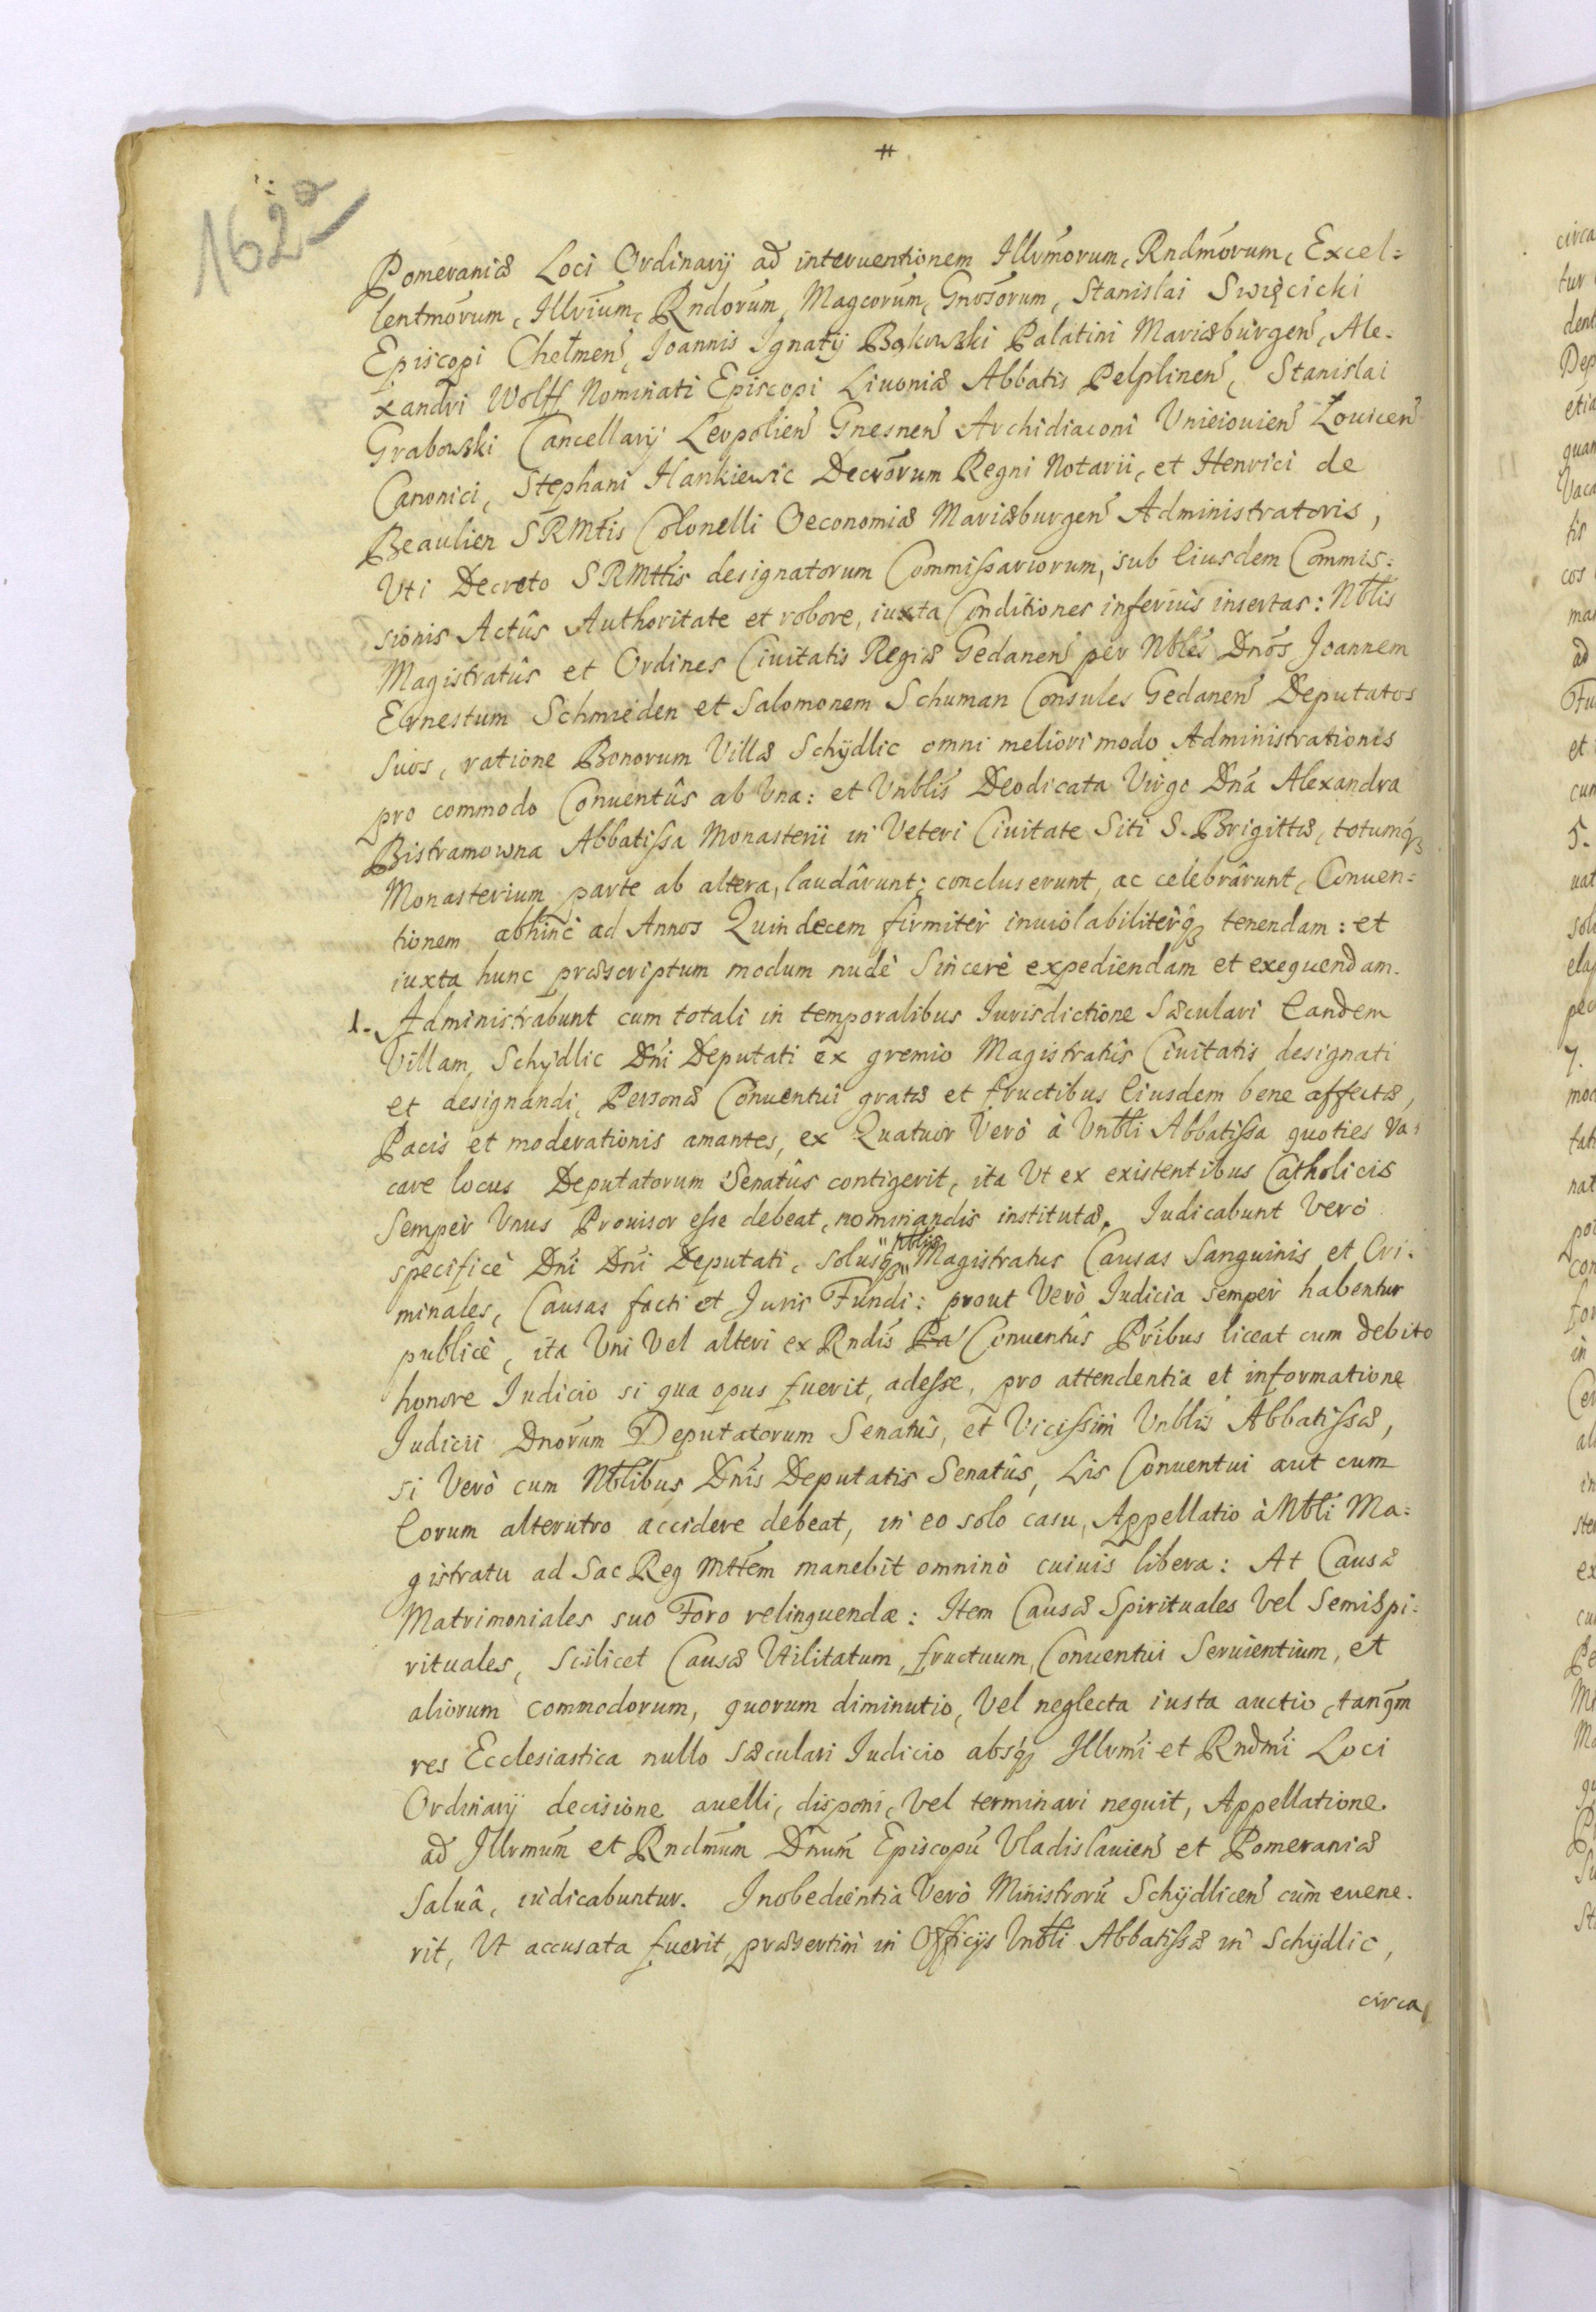 #
162a
Pomeraniæ Loci Ordinarij ad interuentionem Illrmorum, Rndmorum, Excel=
lentmorum, Illrium, Rndorum, Magcorum, Gnosorum, Stanislai Swięcicki
Episcopi Chełmen, Joannis Ignatij Bąkowski Palatini Mariæburgen, Ale-
xandri Wolff Nominati Episcopi Liuoniæ Abbatis Pelplinen, Stanislai
Grabowski Cancellarij Leopolien Gnesnen Archidiaconi Vnieiouien Łouicen
Canonici, Stephani Hankiewic Decrorum Regni Notarii, et Henrici de
Beaulien SRMtis Colonelli Oeconomiæ Mariæburgen Administratoris,
Uti Decreto SRMttis designatorum Commissariorum, sub Eiusdem Commis=
sionis Actûs Authoritate et robore, iuxta Conditiones inferius insertas: Nblis
Magistratûs et Ordines Ciuitatis Regiæ Gedanen per Nbles Dnos Joannem
Ernestum Schmieden et Salomonem Schuman Consules Gedanen Deputatos
suos, ratione Bonorum Villæ Schÿdlic omni meliori modo Administrationis
pro commodo Conuentûs ab Vna: et Vnblis Deodicata Virgo Dna Alexandra
Bistramowna Abbatissa Monasterii in Veteri Ciuitate Siti S. Brigittæ, totumq3
Monasterium parte ab altera, laudârunt; concluserunt, ac celebrârunt, Conuen=
tionem abhinc ad Annos Quindecem firmitèr inuiolabilitèrq3 tenendam: et
iuxta hunc præscriptum modum nudè Sincerè expediendam et exequendam.
1. Administrabunt cum totali in temporalibus Iurisdictione Sæculari Eandem
Villam Schÿdlic Dni Deputati ex gremio Magistratûs Ciuitatis designati
et designandi, Personæ Conuentui gratæ et fructibus Eiusdem bene affectæ,
Pacis et moderationis amantes, ex Quatuor Verò à Vnbli Abbatissa quoties Va=
care locus Deputatorum Senatûs contigerit, ita Ut ex existentibus Catholicis
Sempèr Vnus Prouisor esse debeat, nominandis institutæ. Iudicabunt Verò
specificè Dni Dni Deputati, solusq3 " Nblis " Magistratus Causas Sanguinis et Cri-
minales, Causas facti et Juris Fundi: prout Verò Iudicia semper habentur
publicè, ita Vni Vel alteri ex Rndis Pa Conuentûs Pribus liceat cum debito
honore Iudicio si qua opus fuerit, adesse, pro attendentia et informatione
Judicii Dnorum Deputatorum Senatûs, et Vicissim Vnblis Abbatissæ,
si Verò cum Nblibus Dnis Deputatis Senatûs, Lis Conuentui aut cum
Eorum alterutro accidere debeat, in eo solo casu, Appellatio à Nbli Ma=
gistratu ad Sac Reg Mttem manebit omninò cuiuis libera: At Causæ
Matrimoniales suo Foro relinquendæ: Item Causæ Spirituales Vel Semispi=
rituales, Scilicet Causæ Utilitatum, fructuum, Conuentui Seruientium, et
aliorum commodorum, quorum diminutio, Vel neglecta iusta auctio, tanqm
res Ecclesiastica nullo Sæculari Iudicio absq3 Illrmi et Rndmi Loci
Ordinarij decisione auelli, disponi, Vel terminari nequit, Appellatione
ad Illrmum et Rndmum Dnum Episcopu Vladislauien et Pomeraniæ
Saluâ, iudicabuntur. Inobedientia Verò Ministroru Schÿdlicen cùm euene-
rit, Ut accusata fuerit, præsertim in Officijs Vnbli Abbatissæ in Schÿdlic,
circa